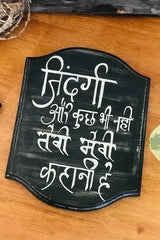 ज़िंदगी
और कुछ भी नही
तेरी मेरी
कहानी है